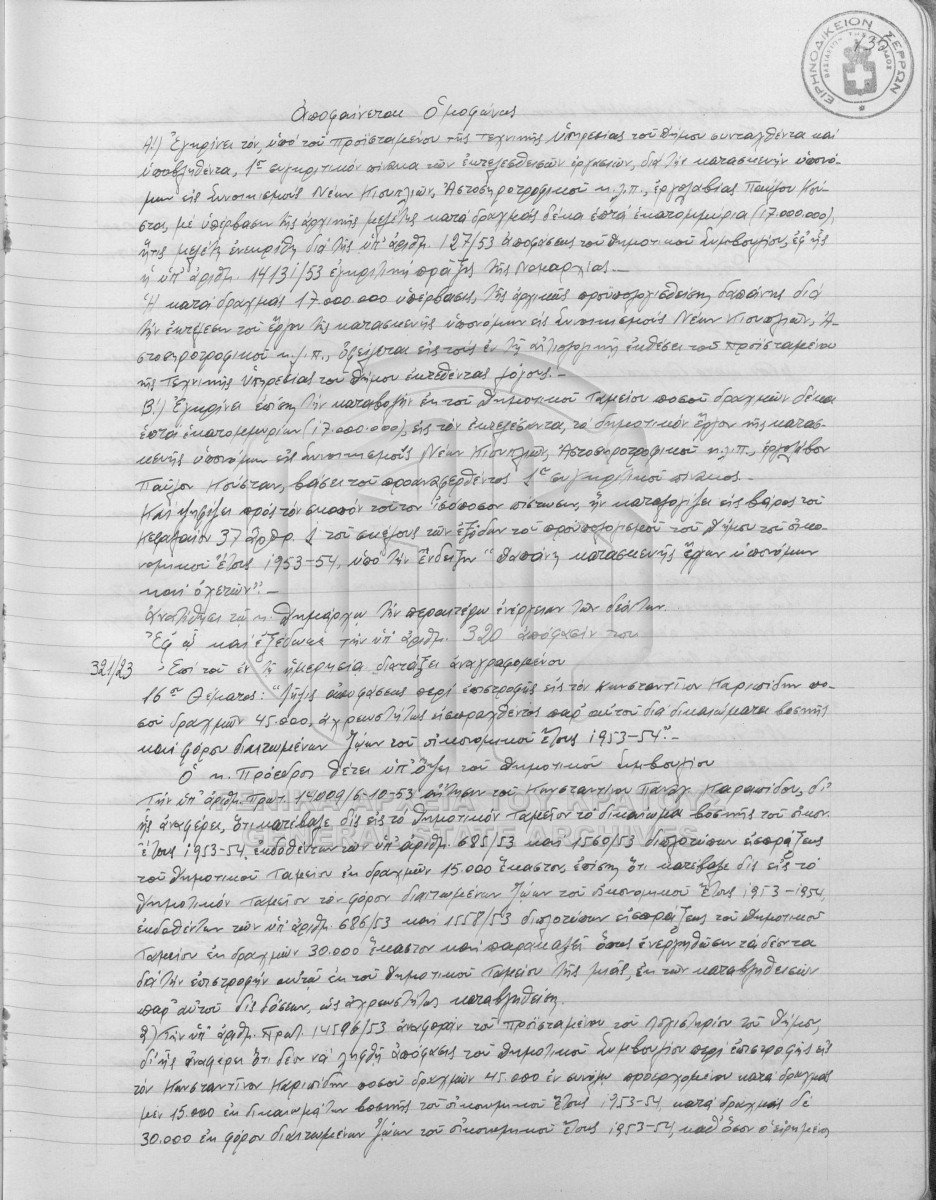 ΕΙΡΗΝΟΔΙΚΕΙΟΝ ΣΕΡΡΩΝ
Ἀποφαίνεται Ὁμοφώνως
Α!) Ἐγκρίνει τόν, ὑπό τοῦ προϊσταμένου τῆς τεχνικῆς ὑπηρεσίας τοῦ Δήμου συνταχθέντα καί
ὑποβληθέντα, 1ον συγκριτικόν πίνακα τῶν ἐκτελεσθεισῶν ἐργασιῶν, διά τήν κατασκευήν ὑπονό-
μων εἰς Συνοικισμούς Νέων Κιουπλιῶν, Ἀστοκτηνοτροφικοῦ κ.λ.π., ἐργολαβίας Παύλου Κού-
στα, μέ ὑπέρβασιν τῆς ἀρχικῆς μελέτης κατά δραχμάς δέκα ἑπτά ἑκατομμύρια (17.000.000),
ἥτις μελέτη ἐνεκρίθη διά τῆς ὑπ' ἀριθμ. 127/53 ἀποφάσεως τοῦ Δημοτικοῦ Συμβουλίου, ἐφ' ἧς
ἡ ὑπ' ἀριθμ. 14131/53 ἐγκριτική πρᾶξις τῆς Νομαρχίας.—
Ἡ κατά δραχμάς 17.000.000 ὑπέρβασις, τῆς ἀρχικῆς προϋπολογισθείσης δαπάνης διά
τήν ἐκτέλεσιν τοῦ ἔργου τῆς κατασκευῆς ὑπονόμων εἰς Συνοικισμούς Νέων Κιουπλιῶν, Ἀ-
κ.λ.π., ὀφείλεται εἰς τούς ἐν τῇ αἰτιολογικῇ ἐκθέσει τοῦ προϊσταμένου
τῆς τεχνικῆς ὑπηρεσίας τοῦ Δήμου ἐκτεθέντας λόγους.—
Β!) Ἐγκρίνει ἐπίσης τήν καταβολήν ἐκ τοῦ Δημοτικοῦ Ταμείου ποσοῦ δραχμῶν δέκα
ἑπτά ἑκατομμυρίων (17.000.000), εἰς τόν ἐκτελέσαντα, τό δημοτικόν ἔργον τῆς κατασ-
κευῆς ὑπονόμων εἰς Συνοικισμούς Νέων Κιουπλιῶν, κ.λ.π., ἐργολάβον
Παῦλον Κούσταν, βάσει τοῦ προαναφερθέντος 1ου συγκριτικοῦ πίνακος.—
Καί ψηφίζει πρός τόν σκοπόν τοῦτον ἰσόποσον πίστωσιν, ἥν καταλογίζει εἰς βάρος τοῦ
Κεφαλαίου 37 ἄρθρ. 1 τοῦ σκέλους τῶν ἐξόδων τοῦ προϋπολογισμοῦ τοῦ Δήμου τοῦ οἰκο-
νομικοῦ ἔτους 1953-54, ὑπό τήν ἔνδειξιν "Δαπάνη κατασκευῆς ἔργων ὑπονόμων
καί ὀχετῶν".—
Ἀνατίθησι τῷ κ. Δημάρχῳ τήν περαιτέρω ἐνέργειαν τῶν δεόντων
Ἐφ' ᾧ καί ἐξέδωκε τήν ὑπ' ἀριθμ. 320 ἀπόφασίν του
321/23 Ἐπί τοῦ ἐν τῇ ἡμερησίᾳ διατάξει ἀναγραφομένου
16ου Θέματος: "Λῆψις ἀποφάσεως περί ἐπιστροφῆς εἰς τόν Κωνσταντῖνον Καριπίδην πο-
σοῦ δραχμῶν 45.000, ἀχρεωστήτως εἰσπραχθέντος παρ' αὐτοῦ διά δικαιώματα βοσκῆς
καί φόρον διαιτωμένων ζώων τοῦ οἰκονομικοῦ ἔτους 1953-54".—
Ὁ κ. Πρόεδρος θέτει ὑπ' ὄψει τοῦ Δημοτικοῦ Συμβουλίου
Τήν ὑπ' ἀριθμ. Πρωτ. 14009/6-10-53 αἴτησιν τοῦ Κωνσταντίνου Παναγ. Καριπίδου, δι'
ἧς ἀναφέρει, ὅτι κατέβαλε δίς εἰς τό Δημοτικόν Ταμεῖον τό δικαίωμα βοσκῆς τοῦ οἰκον.
ἔτους 1953-54, ἐκδοθέντων τῶν ὑπ' ἀριθμ. 685/53 καί 1560/53 διπλοτύπων εἰσπράξεως
τοῦ Δημοτικοῦ Ταμείου ἐκ δραχμῶν 15.000 ἕκαστον, ἐπίσης ὅτι κατέβαλε δίς εἰς τό
Δημοτικόν Ταμεῖον τόν φόρον διαιτωμένων ζώων τοῦ οἰκονομικοῦ ἔτους 1953-1954,
ἐκδοθέντων τῶν ὑπ' ἀριθμ. 686/53 καί 1558/53 διπλοτύπων εἰσπράξεως τοῦ Δημοτικοῦ
Ταμείου ἐκ δραχμῶν 30.000 ἕκαστον καί παρακαλεῖ ὅπως ἐνεργηθῶσιν τά δέοντα
διά τήν ἐπιστροφήν αὐτῷ ἐκ τοῦ Δημοτικοῦ Ταμείου τῆς μιᾶς, ἐκ τῶν καταβληθεισῶν
παρ' αὐτοῦ δίς δόσεων, ὡς ἀχρεωστήτως καταβληθείσης.
2) Τήν ὑπ' ἀριθμ. Πρωτ. 14596/53 ἀναφοράν τοῦ προϊσταμένου τοῦ Λογιστηρίου τοῦ Δήμου,
δι' ἧς ἀναφέρει ὅτι δέον νά ληφθῇ ἀπόφασις τοῦ Δημοτικοῦ Συμβουλίου περί ἐπιστροφῆς εἰς
τόν Κωνσταντῖνον Καριπίδην ποσοῦ δραχμῶν 45.000 ἐν συνόλῳ προερχομένου κατά δραχμάς
μέν 15.000 ἐκ δικαιωμάτων βοσκῆς τοῦ οἰκονομικοῦ ἔτους 1953-54, κατά δραχμάς δέ
30.000 ἐκ φόρου διαιτωμένων ζώων τοῦ οἰκονομικοῦ ἔτους 1953-54, καθ' ὅσον ὁ εἰρημένος
ΓΕΝΙΚΑ ΑΡΧΕΙΑ ΤΟΥ ΚΡΑΤΟΥΣ
GENERAL STATE ARCHIVES